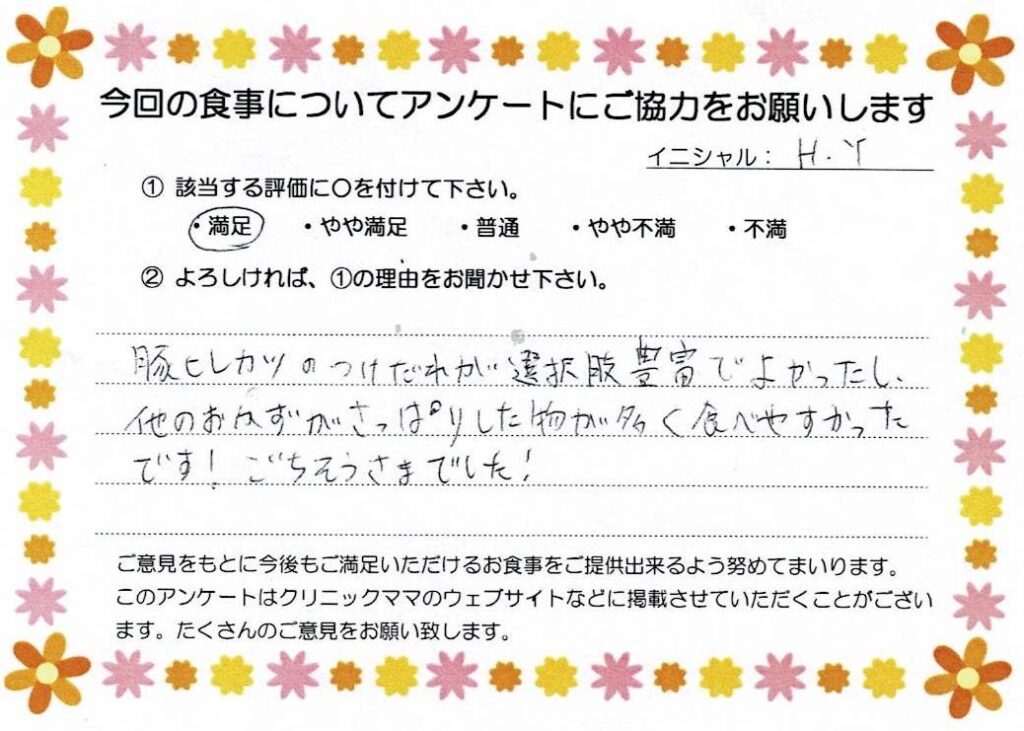 今回の食事についてアンケートにご協力をお願いします
イニシャル： H.Y
① 該当する評価に〇を付けて下さい。
・満足 ・やや満足 ・普通 ・やや不満 ・不満
② よろしければ、①の理由をお聞かせ下さい。
豚ヒレカツのつけだれが選択肢豊富でよかったし、
他のおかずがさっぱりした物が多く食べやすかった
です！ごちそうさまでした！
ご意見をもとに今後もご満足いただけるお食事をご提供出来るよう努めてまいります。
このアンケートはクリニックママのウェブサイトなどに掲載させていただくことがござい
ます。たくさんのご意見をお願い致します。